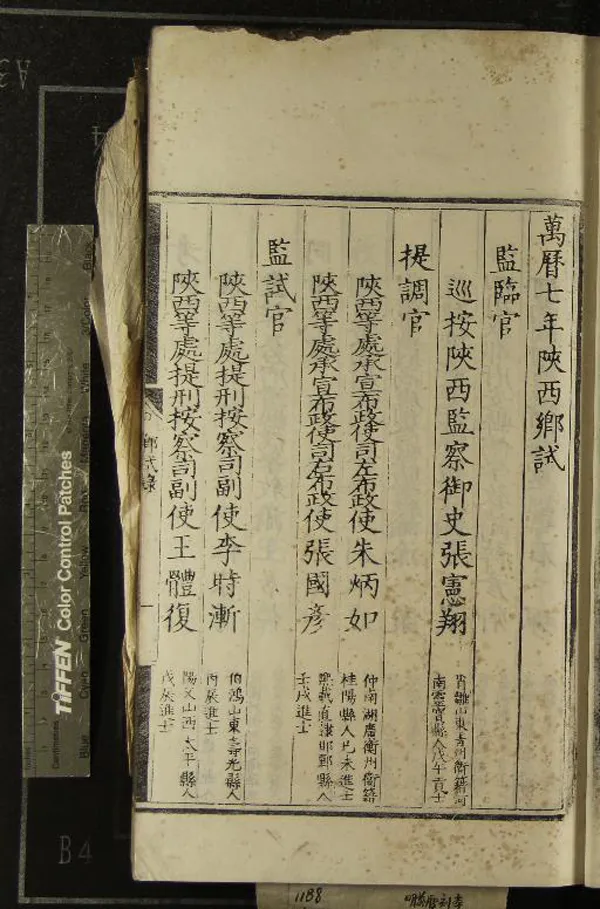 萬曆七年陝西鄉試
監臨官
巡按陝西監察御史張憲翔
青州衛籍河
南靈寶縣人戊午貢士
提調官
陝西等處承宣布政使司左布政使朱炳如
仲南湖廣衡州衛籍
桂陽縣人己未進士
陝西等處承宣布政使司右布政使張國彥
熙載直隸邯鄲縣人
壬戌進士
監試官
陝西等處提刑按察司副使李時漸
伯鴻山東壽光縣人
丙辰進士
陝西等處提刑按察司副使王體復
陽父山西太平縣人
戊辰進士
鄉試錄
一
TIFFEN Color Control Patches
Blue
Green
Yellow
Black
B4
A3
1188